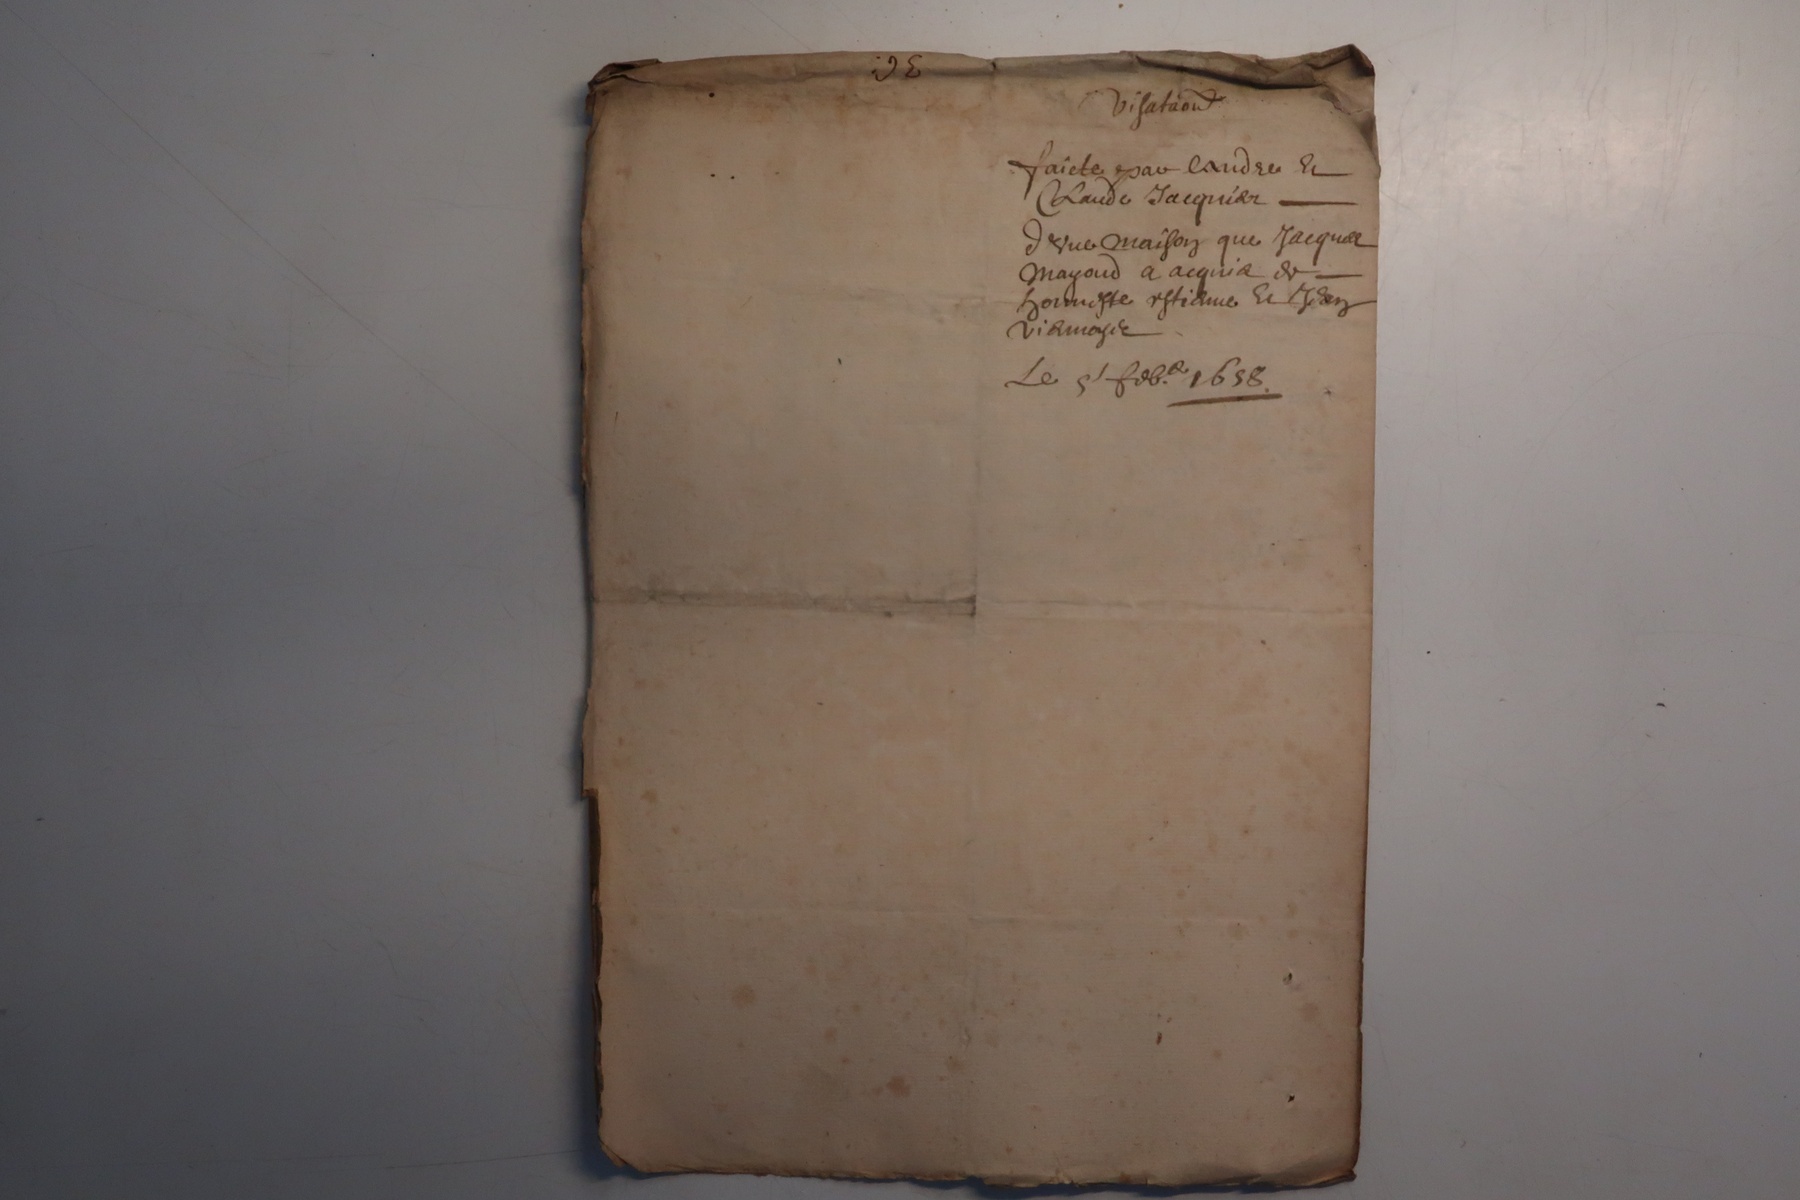 Visitaon
faicte par Landre et
Claude Jacquier
d'vne maison que Jacques
Mayoud a acquis de
honneste estienne et Jean
Le 5 feb. 1658.